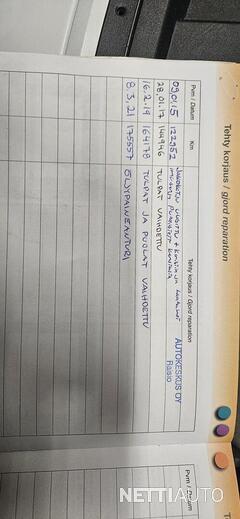 Tehty korjaus / gjord reparation
Pvm / Datum Km Tehty korjaus / Gjord reparation
AUTOKESKUS OY
Raisio
09.01.15 122952
28.01.17 144946 TULPAT VAIHDETTU
16.2.19 164178 TULPAT JA PUOLAT VAIHDETTU
8.3.21 175557 ÖLJYPAINEANTURI
Pvm / Datum
NETTIAUTO